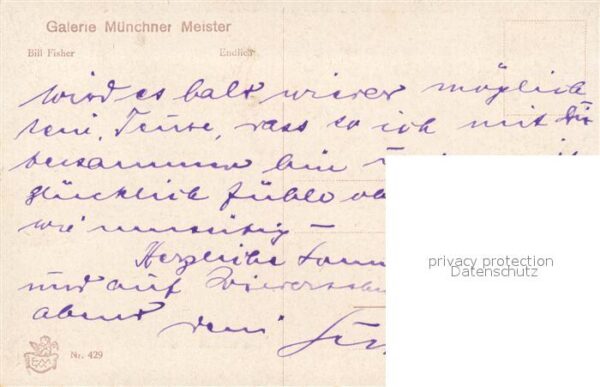 Galerie Münchner Meister
Bill Fisher Endlich
wird es bald wieder möglich
sein, Teure, dass so ich mit Dir
beisammen bin
glücklich fühle
wie unruhig –
Herzliche
und auf Wiedersehen
abend dein
Nr. 429
privacy protection
Datenschutz